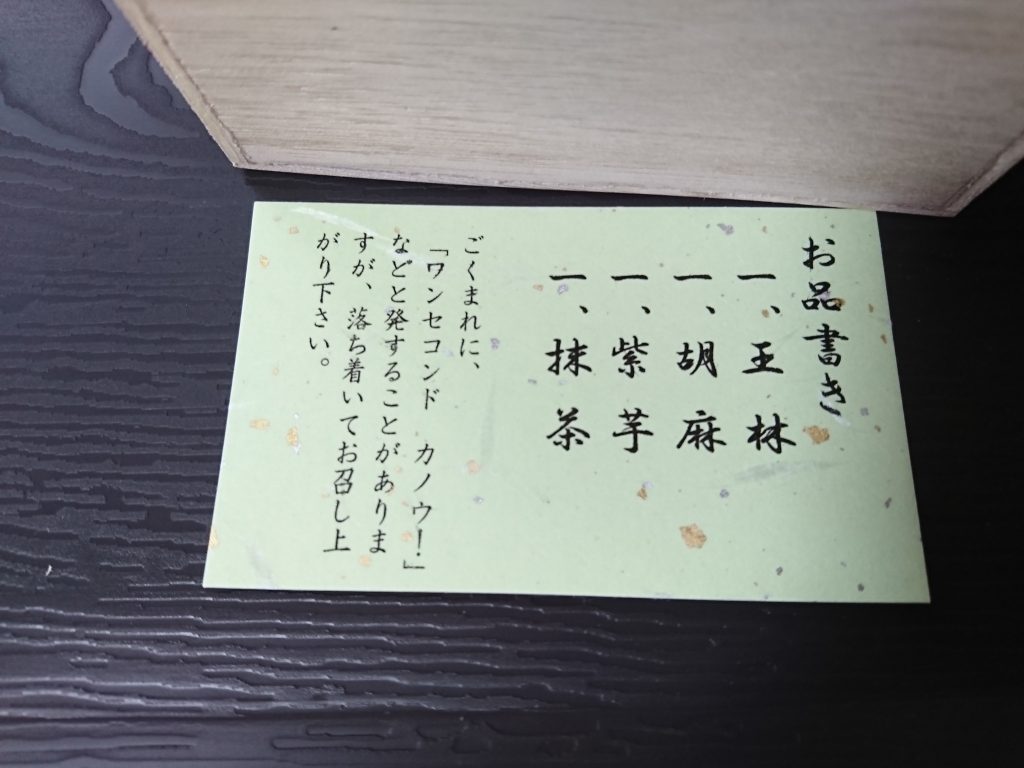 お品書き
一、王林
一、胡麻
一、紫芋
一、抹茶
ごくまれに、
「ワンセコンド　カノウ！」
などと発することがありま
すが、落ち着いてお召し上
がり下さい。